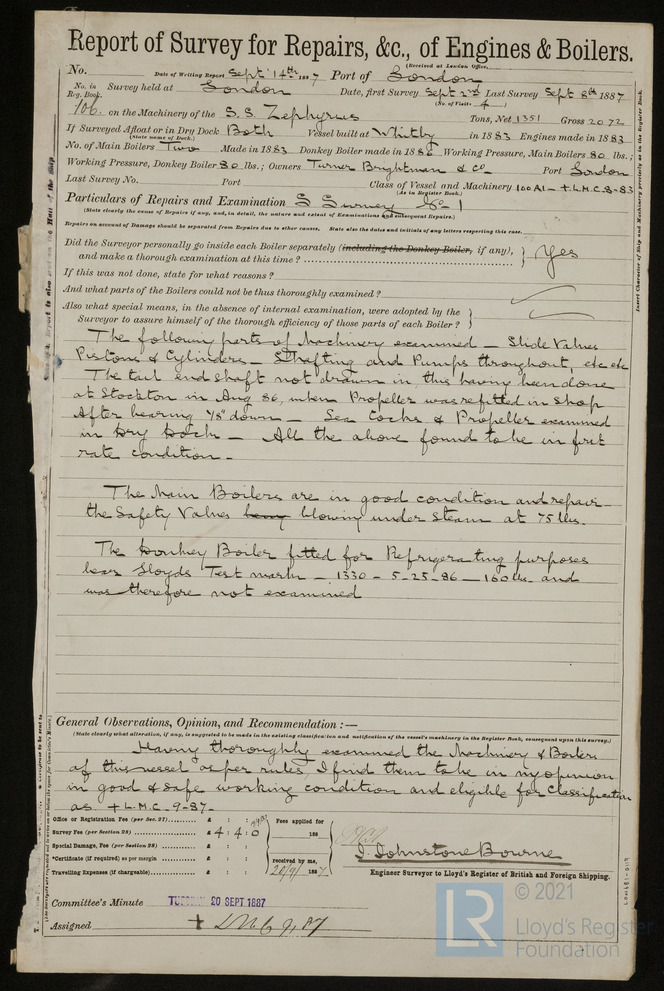 Report of Survey for Repairs, &c., of Engines & Boilers.
(Received at London Office,
No. Date of Writing Report Sept 14th 1887 Port of London
No. in Reg. Book. Survey held at London Date, first Survey Sept 2nd Last Survey Sept 8th 1887
(No. of Visits 4)
106. on the Machinery of the S.S. Zephyrus Tons, Net 1351 Gross 2072
If Surveyed Afloat or in Dry Dock Both Vessel built at Whitby in 1883 Engines made in 1883
(State name of Dock.)
No. of Main Boilers Two Made in 1883 Donkey Boiler made in 1886 Working Pressure, Main Boilers 80 lbs.;
Working Pressure, Donkey Boiler 80 lbs.; Owners Turner Brightman & Co Port London
Last Survey No. Port Class of Vessel and Machinery 100A1 - + L.M.C. 8-83
(As in Register Book.)
Particulars of Repairs and Examination S Survey No 1
(State clearly the cause of Repairs if any, and, in detail, the nature and extent of Examinations and subsequent Repairs.)
Repairs on account of Damage should be separated from Repairs due to other causes. State also the dates and initials of any letters respecting this case.
Did the Surveyor personally go inside each Boiler separately (including the Donkey Boiler, if any),
and make a thorough examination at this time? Yes
If this was not done, state for what reasons?
And what parts of the Boilers could not be thus thoroughly examined?
Also what special means, in the absence of internal examination, were adopted by the
Surveyor to assure himself of the thorough efficiency of those parts of each Boiler?
The following parts of Machinery examined - Slide Valves
Pistons & Cylinders - Shafting and Pumps throughout, etc etc
The tail end shaft not drawn in, this having been done
at Stockton in Aug 86, when Propeller was refitted in shop
After bearing 1/8" down - Sea Cocks & Propeller examined
in Dry Dock - All the above found to be in first
rate condition.
The Main Boilers are in good condition and repair -
the Safety Valves heavy blowing under steam at 75 lbs.
The Donkey Boiler fitted for Refrigerating purposes
bears Lloyds Test marks - 1330 - 5-25-86 - 160 lbs and
was therefore not examined
General Observations, Opinion, and Recommendation :—
(State clearly what alteration, if any, is suggested to be made in the existing classification and notification of the vessel's machinery in the Register Book, consequent upon this survey.)
Having thoroughly examined the Machinery & Boilers
of this vessel as per rules, I find them to be in my opinion
in good & safe working condition and eligible for Classification
as + L.M.C. 9-87.
Office or Registration Fee (per Sec. 27) £ : :
Fees applied for
Survey Fee (per Section 28) £ 4 : 4 : 0
188
Special Damage, Fee (per Section 28) £ : :
*Certificate (if required) as per margin £ : :
received by me,
Travelling Expenses (if chargeable) £ : :
20/9/ 1887
J. Johnstone Bourne
Engineer Surveyor to Lloyd's Register of British and Foreign Shipping.
Committee's Minute TUESDAY 20 SEPT 1887
Assigned + LMC 9,87
Insert Character of Ship and Machinery precisely as in the Register Book.
LR
© 2021
Lloyd's Register
Foundation